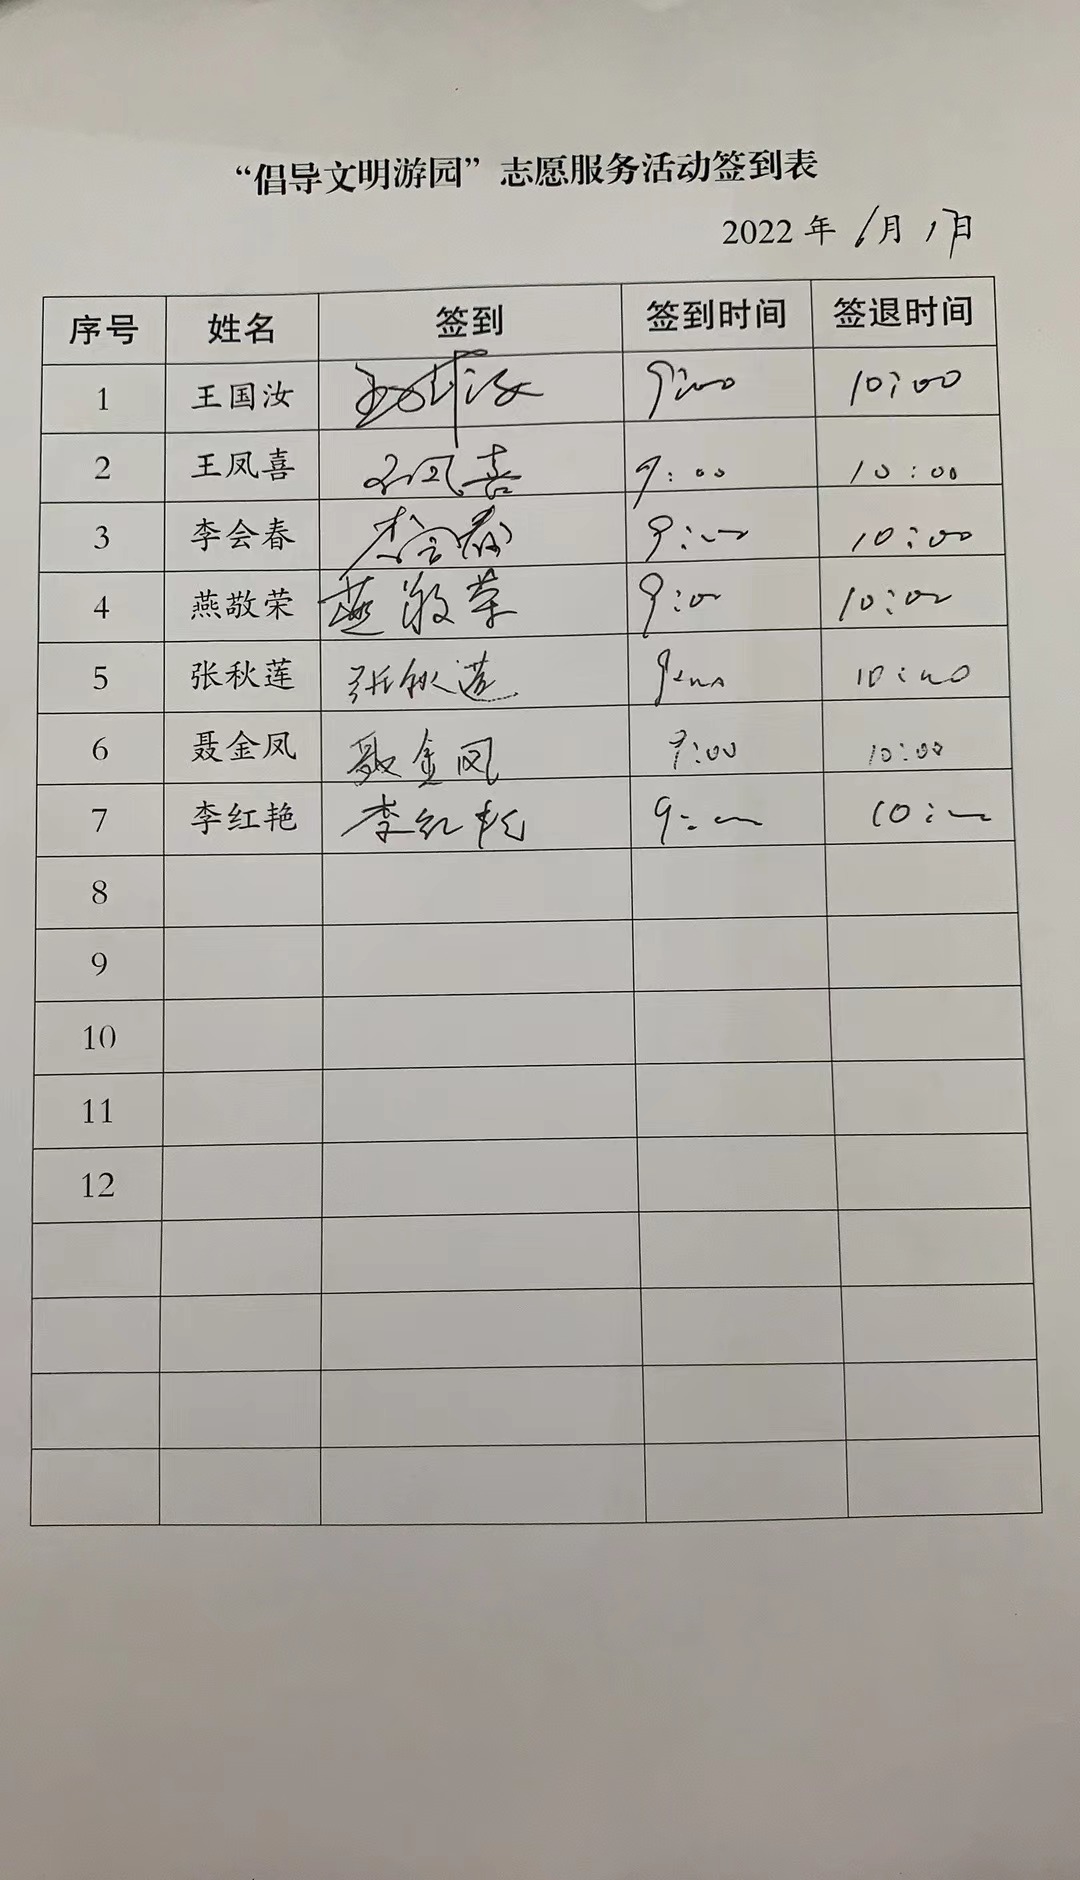 “倡导文明游园”志愿服务活动签到表
2022年6月17日
序号 姓名 签到 签到时间 签退时间
1 王国汝 9:00 10:00
2 王凤喜 王凤喜 9:00 10:00
3 李会春 李会春 9:00 10:00
4 燕敬荣 燕敬荣 9:00 10:00
5 张秋莲 张秋莲 9:00 10:00
6 聂金凤 聂金凤 9:00 10:00
7 李红艳 李红艳 9:00 10:00
8
9
10
11
12